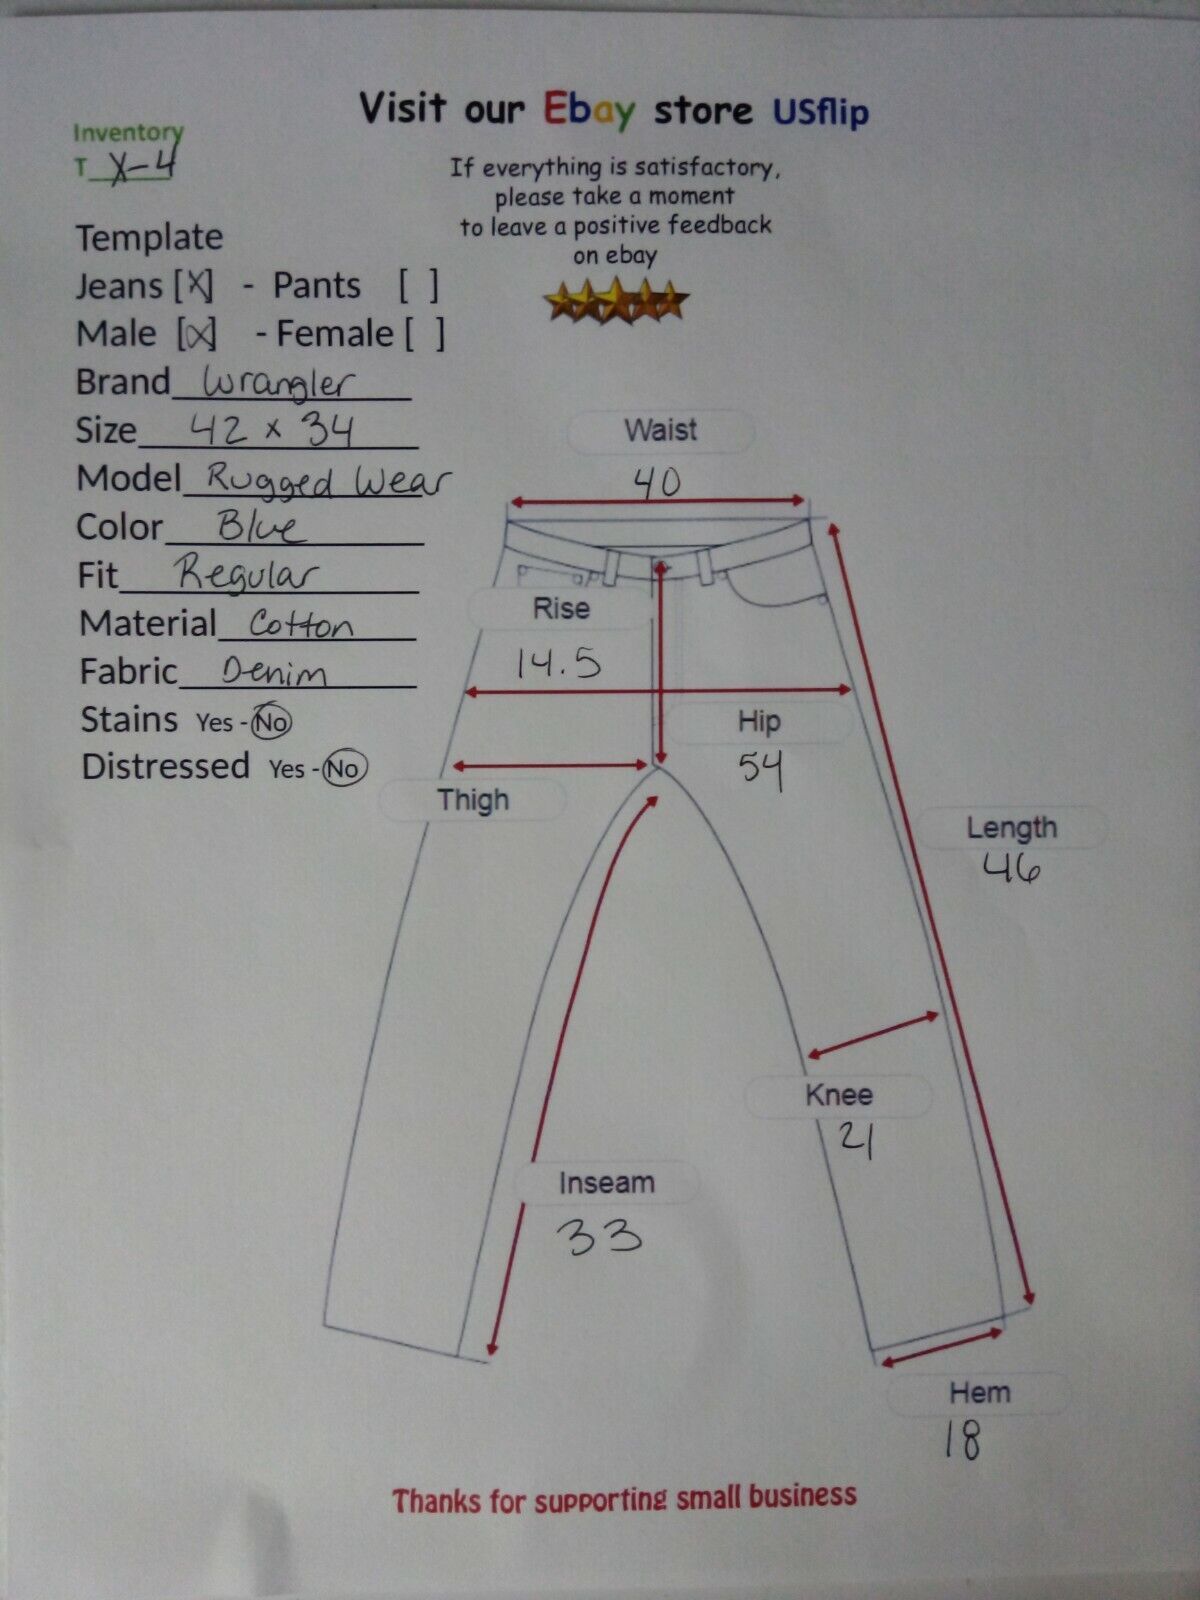 Visit our Ebay store USflip
Inventory
T X-4
If everything is satisfactory,
please take a moment
to leave a positive feedback
on ebay
Template
Jeans [X] - Pants [ ]
Male [X] - Female [ ]
Brand Wrangler
Size 42 x 34
Model Rugged Wear
Color Blue
Fit Regular
Material Cotton
Fabric Denim
Stains Yes - No
Distressed Yes - No
Waist
40
Rise
14.5
Hip
54
Thigh
Length
46
Knee
21
Inseam
33
Hem
18
Thanks for supporting small business